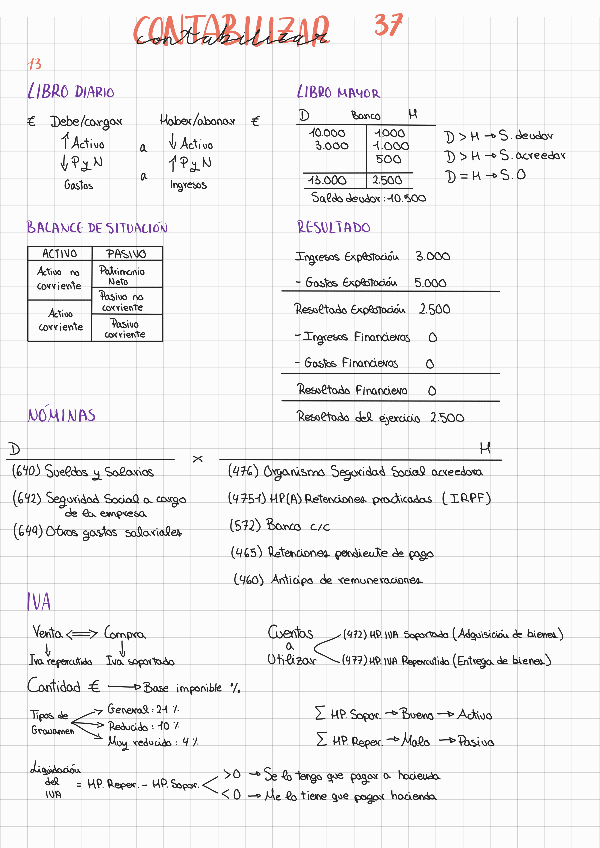 CONTABILIZAR 37
contabilizar
13
LIBRO DIARIO
€ Debe/cargar Haber/abonar €
↑ Activo a ↓ Activo
↓ P y N ↑ P y N
Gastos a Ingresos
LIBRO MAYOR
D Banco H
10.000 1.000
3.000 1.000
500
13.000 2.500
Saldo deudor: 10.500
D > H → S. deudor
D > H → S. acreedor
D = H → S. 0
BALANCE DE SITUACIÓN
ACTIVO PASIVO
Activo no corriente
Activo corriente
Patrimonio Neto
Pasivo no corriente
Pasivo corriente
RESULTADO
Ingresos Explotación 3.000
- Gastos Explotación 5.000
Resultado Explotación 2.500
- Ingresos Financieros 0
- Gastos Financieros 0
Resultado Financiero 0
Resultado del ejercicio 2.500
NÓMINAS
D x H
(640) Sueldos y Salarios
(642) Seguridad Social a cargo
de la empresa
(649) Otros gastos salariales
(476) Organismo Seguridad Social acreedora
(4751) HP(A) Retenciones practicadas (IRPF)
(572) Banco c/c
(465) Retenciones pendiente de pago
(460) Anticipo de remuneraciones
IVA
Venta ⟺ Compra
↓ ↓
Iva repercutido Iva soportado
Cuentas a Utilizar
(472) HP. IVA Soportado (Adquisición de bienes)
(477) HP. IVA Repercutido (Entrega de bienes)
Cantidad € → Base imponible %
Tipos de Gravamen
General: 21 %
Reducido: 10 %
Muy reducido: 4 %
Σ HP. Sopor. → Bueno → Activo
Σ HP. Reper. → Malo → Pasivo
Liquidación del IVA = HP. Reper. - HP. Sopor.
> 0 → Se lo tengo que pagar a hacienda
< 0 → Me lo tiene que pagar hacienda